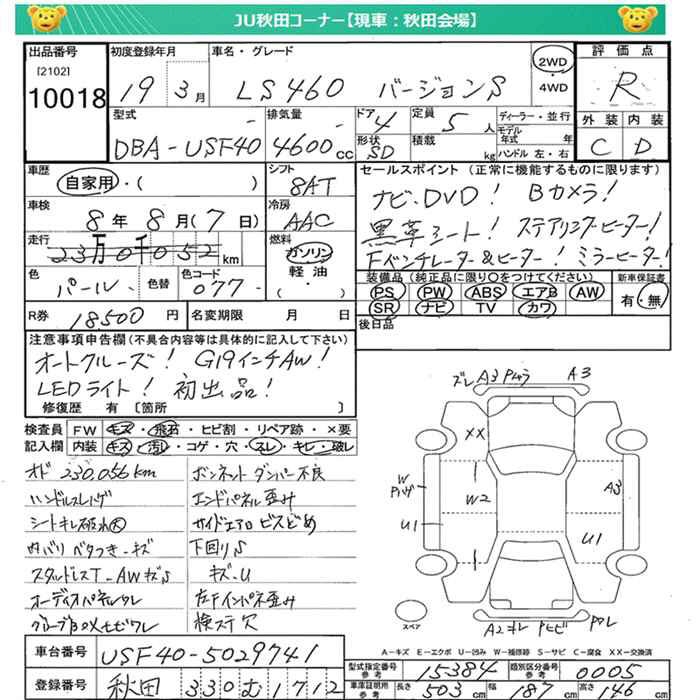 JU秋田コーナー【現車：秋田会場】
出品番号 初度登録年月 車名・グレード 2WD・4WD 評価点
[2102]
10018 19 3月 LS460 バージョンS R
型式 排気量 ドア 4 定員 5人 ディーラー・並行 外装 内装
モデル年式 年
DBA-USF40 4600cc 形状 SD 積載 kg ハンドル 左・右 C D
車歴 シフト セールスポイント（正常に機能するものに限ります）
自家用・( ) 8AT ナビ、DVD! Bカメラ!
車検 冷房 黒革シート! ステアリングヒーター!
8年8月(7日) AAC
走行 燃料 Fベンチレータ&ヒーター! ミラーヒーター!
23万0千052km ガソリン
軽油・( )
色 パール 色替 色コード 077
装備品（純正品に限り○をつけてください） 新車保証書
PS PW ABS エアB AW 有・無
SR ナビ TV カワ
R券 18500円 名変期限 月 日 後日品
注意事項申告欄（不具合内容等は具体的に記入して下さい）
オートクルーズ! G19インチAW!
LEDライト! 初出品!
修復歴 有 〔箇所 〕
検査員 FW キズ・飛石・ヒビ割・リペア跡・×要
記入欄 内装 キズ・汚レ・コゲ・穴・スレ・キレ・破レ
メド 230,056km ボンネットダンパー不良
ハンドルスレハゲ エンドパネル歪み
シートキレ破れ大 サイドエアロビスどめ
内バリベタつき-キズ 下回りS
スタッドレスT-AWキズS キズ-U
オーディオパネルワレ 左Fインパネ歪み
グローブBOXヒビワレ 検ステ穴
ズレ A3 Pキラ A3
XX
W Pハゲ
W2
A3
U1
U1
スペア
A2キレ Pヒビ Pワレ
A-キズ E-エクボ U-凹み W-補修跡 S-サビ C-腐食 XX-交換済
車台番号 USF40-5029741
型式指定番号 参考 15384 類別区分番号 参考 0005
登録番号 秋田 330 む 1712
車庫証明用 参考 長さ 503cm 幅 187cm 高さ 148cm